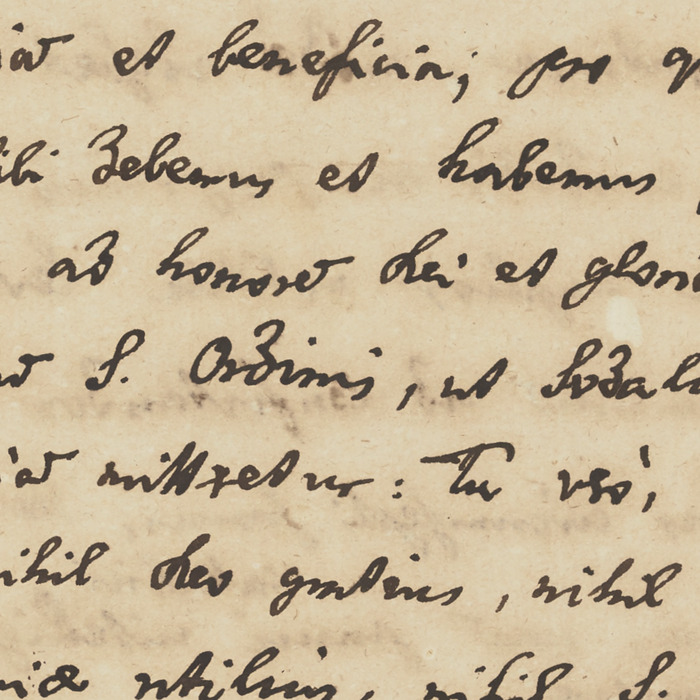 et beneficia; pro
debemus et habemus
ad honorem Dei et
S. Ordinis, ut
mitteretur: Tu vero,
nihil Deo gratius, nihil
utilius, nihil S.